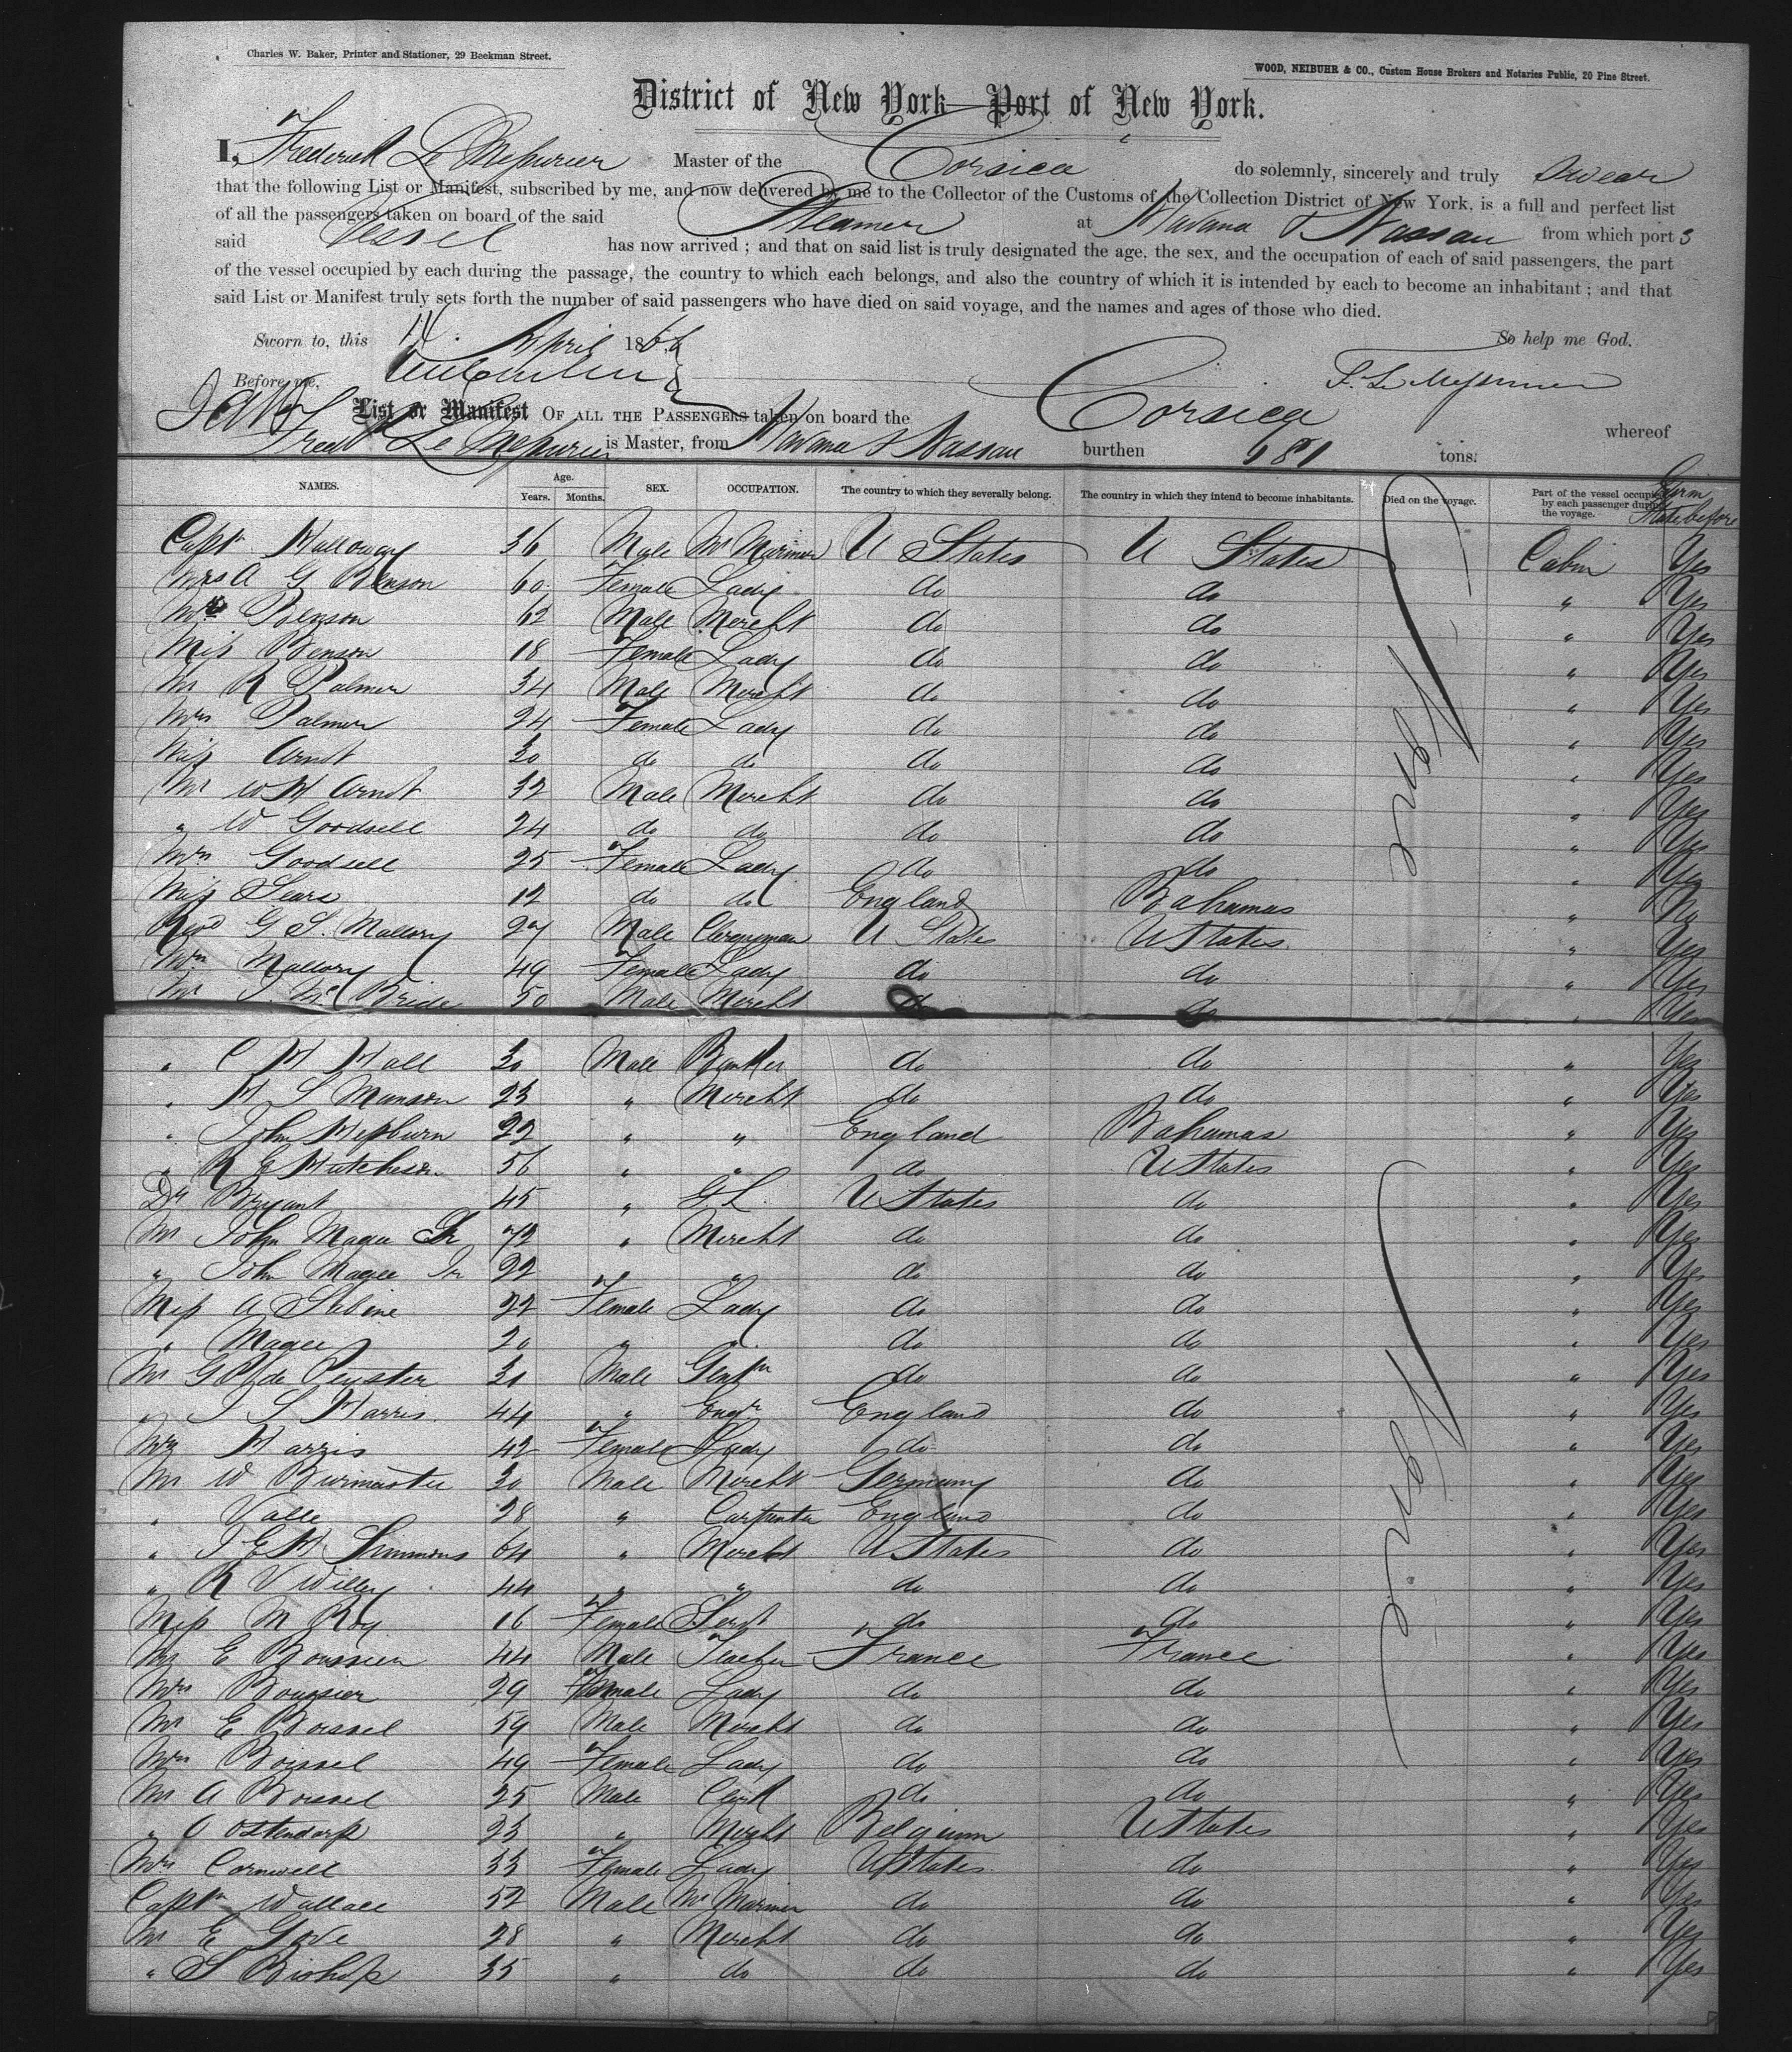 Charles W. Baker, Printer and Stationer, 29 Beekman Street.
WOOD, NEIBUHR & CO., Custom House Brokers and Notaries Public, 20 Pine Street.
District of New York—Port of New York.
I, Frederick Le Mesurier Master of the Corsica do solemnly, sincerely and truly swear
that the following List or Manifest, subscribed by me, and now delivered by me to the Collector of the Customs of the Collection District of New York, is a full and perfect list
of all the passengers taken on board of the said Steamer at Havana & Nassau from which port s
said Vessel has now arrived ; and that on said list is truly designated the age, the sex, and the occupation of each of said passengers, the part
of the vessel occupied by each during the passage, the country to which each belongs, and also the country of which it is intended by each to become an inhabitant ; and that
said List or Manifest truly sets forth the number of said passengers who have died on said voyage, and the names and ages of those who died.
Sworn to, this 14 April 1866 So help me God.
Before me, F. Le Mesurier
List or Manifest OF ALL THE PASSENGERS taken on board the Corsica whereof
Fredk Le Mesurier is Master, from Havana & Nassau burthen 681 tons.
NAMES. Age. Years. Months. SEX. OCCUPATION. The country to which they severally belong. The country in which they intend to become inhabitants. Died on the voyage. Part of the vessel occupied by each passenger during the voyage.
Capt Holloway 36 Male Mr Mariner U States U States Cabin Yes
Mrs A G Benson 60 Female Lady do do " Yes
Mr Benson 62 Male Mercht do do " Yes
Miss Benson 18 Female Lady do do " Yes
Mr R Palmer 34 Male Mercht do do " Yes
Mrs Palmer 24 Female Lady do do " Yes
Miss Arndt 30 do do do do " Yes
Mr W H Arndt 32 Male Mercht do do " Yes
" W Goodsell 24 do do do do " Yes
Mrs Goodsell 25 Female Lady do do " Yes
Miss Sears 12 do do England Bahamas " No
Revd G S. Mallory 27 Male Clergyman U States U States " Yes
Mrs Mallory 49 Female Lady do do " Yes
Mr J. Mc Bride 50 Male Mercht do do " Yes
" C H Hall 30 Male Banker do do " Yes
" H S Manson 23 " Mercht do do " Yes
" John Hepburn 22 " " England Bahamas " Yes
" R E Hutcheson 56 " " do U States " Yes
Dr Bryant 45 " U States do " Yes
Mr John Magee Sr 72 " Mercht do do " Yes
" John Magee Jr 22 " " do do " Yes
Miss A 22 Female Lady do do " Yes
" Magee 20 " " do do " Yes
Mr de Peyster 31 Male Gentn do do " Yes
" J S Harris 44 " Engr England do " Yes
Mrs Harris 42 Female Lady do do " Yes
Mr W Burmaster 30 Male Mercht Germany do " Yes
" Valle 28 " Carpenter England do " Yes
" J E H Simmons 64 " Mercht U States do " Yes
" R V Willey 44 " " do do " Yes
Miss M Roy 16 Female Servt do do " Yes
Mr E Boussier 44 Male Teacher France France " Yes
Mrs Boussier 29 Female Lady do do " Yes
Mr E Boissel 59 Male Mercht do do " Yes
Mrs Boissel 49 Female Lady do do " Yes
Mr A Boissel 25 Male Clerk do do " Yes
" C Ostendorp 23 " Mercht Belgium U States " Yes
Mrs Cornwell 33 Female Lady U States do " Yes
Captn Wallace 52 Male Mr Mariner do do " Yes
Mr E Gove 28 " Mercht do do " Yes
" S Bishop 35 " do do do " Yes